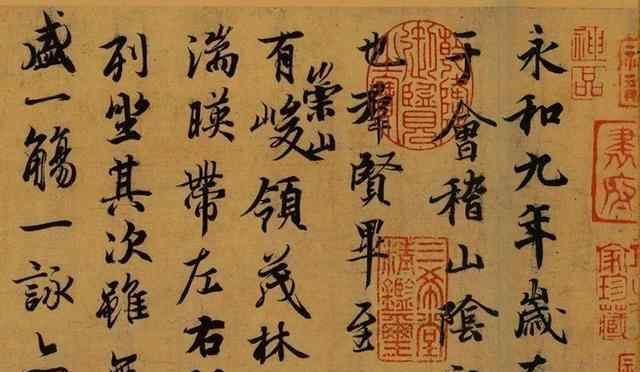 神品
永和九年歲在
于會稽山陰
也羣賢畢至
有崇山峻領茂林
湍暎帶左右
列坐其次雖無
盛一觴一詠
三希堂精鑑璽